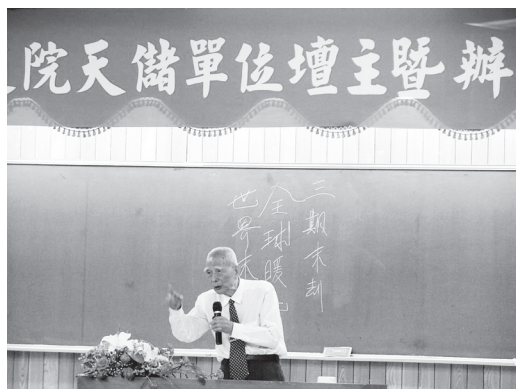 院天儲單位壇主暨辦
三期末劫
全球暖化
世界末